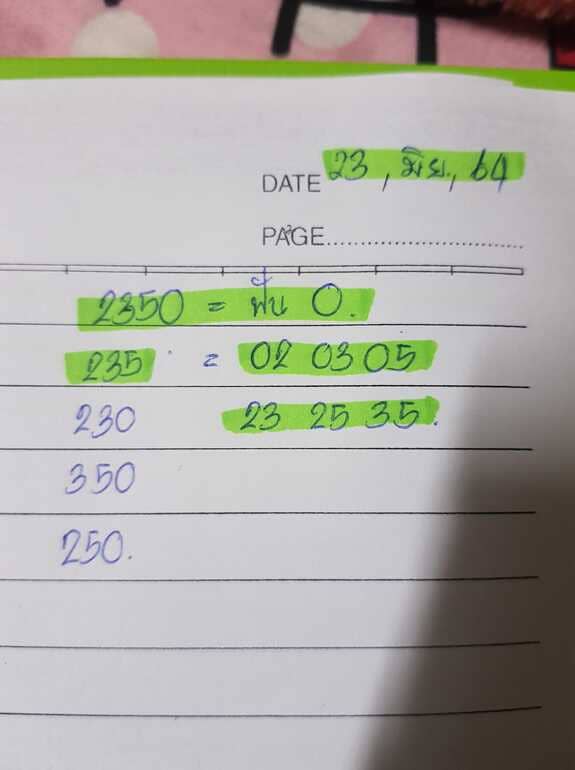 DATE 23, มิย, 64
PAGE
2350 = ฟัน 0.
235 = 02 03 05
230 23 25 35.
350
250.